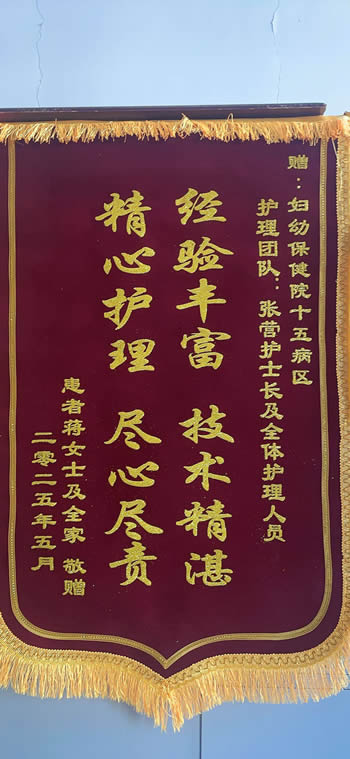 赠：妇幼保健院十五病区
护理团队：张营护士长及全体护理人员
经验丰富 技术精湛
精心护理 尽心尽责
患者蒋女士及全家 敬赠
二零二五年五月